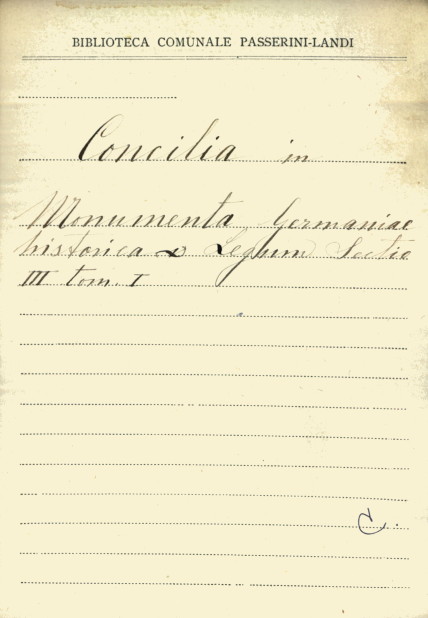 BIBLIOTECA COMUNALE PASSERINI-LANDI
Concilia in
Monumenta Germaniae
historica Legum Sectio
III tom. I
C.